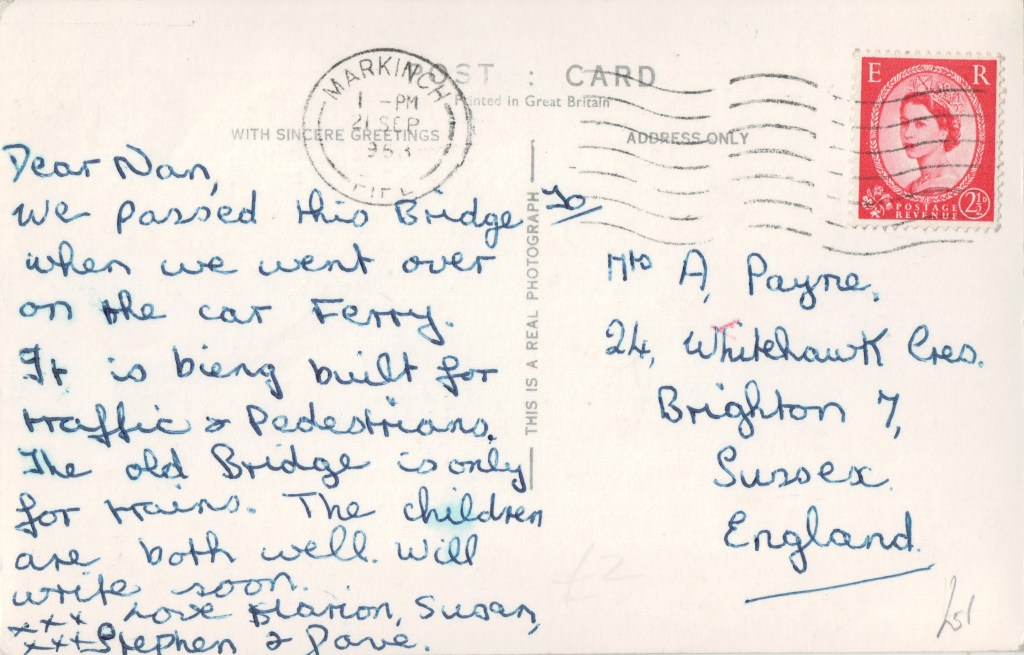 POST : CARD
Printed in Great Britain
WITH SINCERE GREETINGS
ADDRESS ONLY
MARKINCH
1 - PM
21 SEP
1963
FIFE
E R
POSTAGE
REVENUE
2½D
Dear Nan,
We passed this Bridge
when we went over
on the car Ferry.
It is bieng built for
traffic & Pedestrians.
The old Bridge is only
for trains. The children
are both well. Will
write soon.
xxx Love Marion, Susan,
xxx Stephen & Dave.
THIS IS A REAL PHOTOGRAPH
To
Mrs A, Payne,
24, Whitehawk Cres.
Brighton 7,
Sussex.
England.
£2